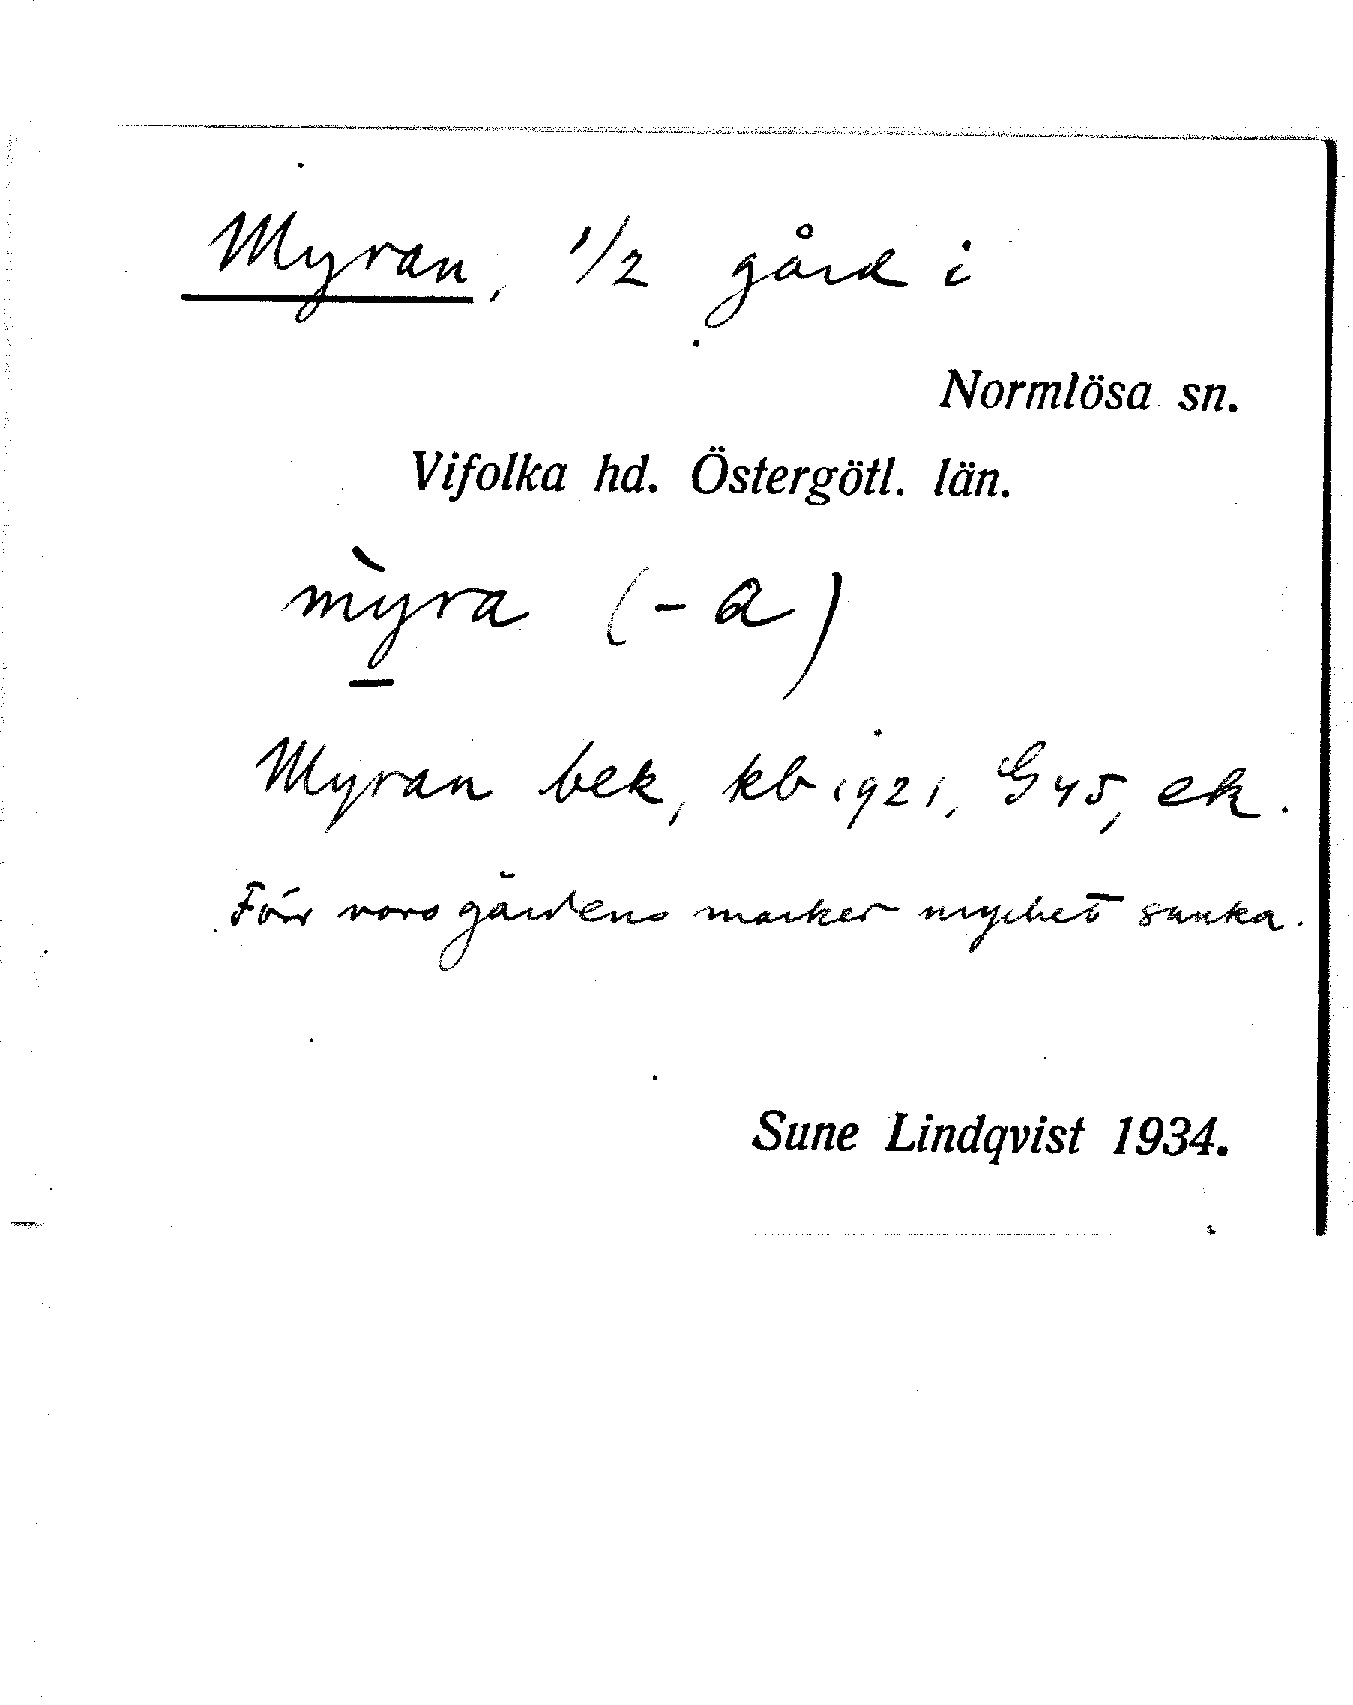 Myran, 1/2 gård i
Normlösa sn.
Vifolka hd. Östergötl. län.
mỳra (-a)
Myran bek, kb 1921, G45, ek.
Förr voro gårdens marker mycket sanka.
Sune Lindqvist 1934.